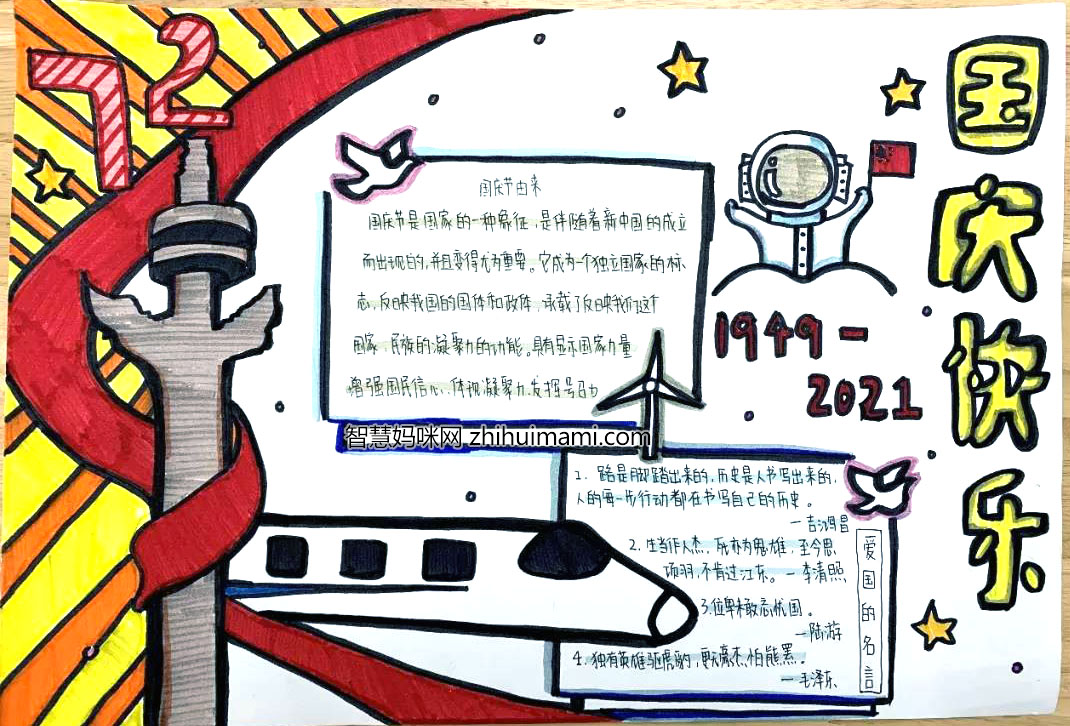 72
国庆快乐
国庆节由来
国庆节是国家的一种象征,是伴随着新中国的成立
而出现的,并且变得尤为重要。它成为一个独立国家的标
志,反映我国的国体和政体,承载了反映我们这个
国家,民族的凝聚力的功能。具有显示国家力量
增强国民信心,体现凝聚力,发挥号召力
1949-
2021
智慧妈咪网 zhihuimami.com
1. 路是用脚踏出来的,历史是人书写出来的,
人的每一步行动都在书写自己的历史。
—吉鸿昌
2. 生当作人杰,死亦为鬼雄,至今思
项羽,不肯过江东。—李清照
3.位卑未敢忘忧国。
—陆游
4.独有英雄驱虎豹,更无豪杰怕熊罴。
—毛泽东
爱国的名言